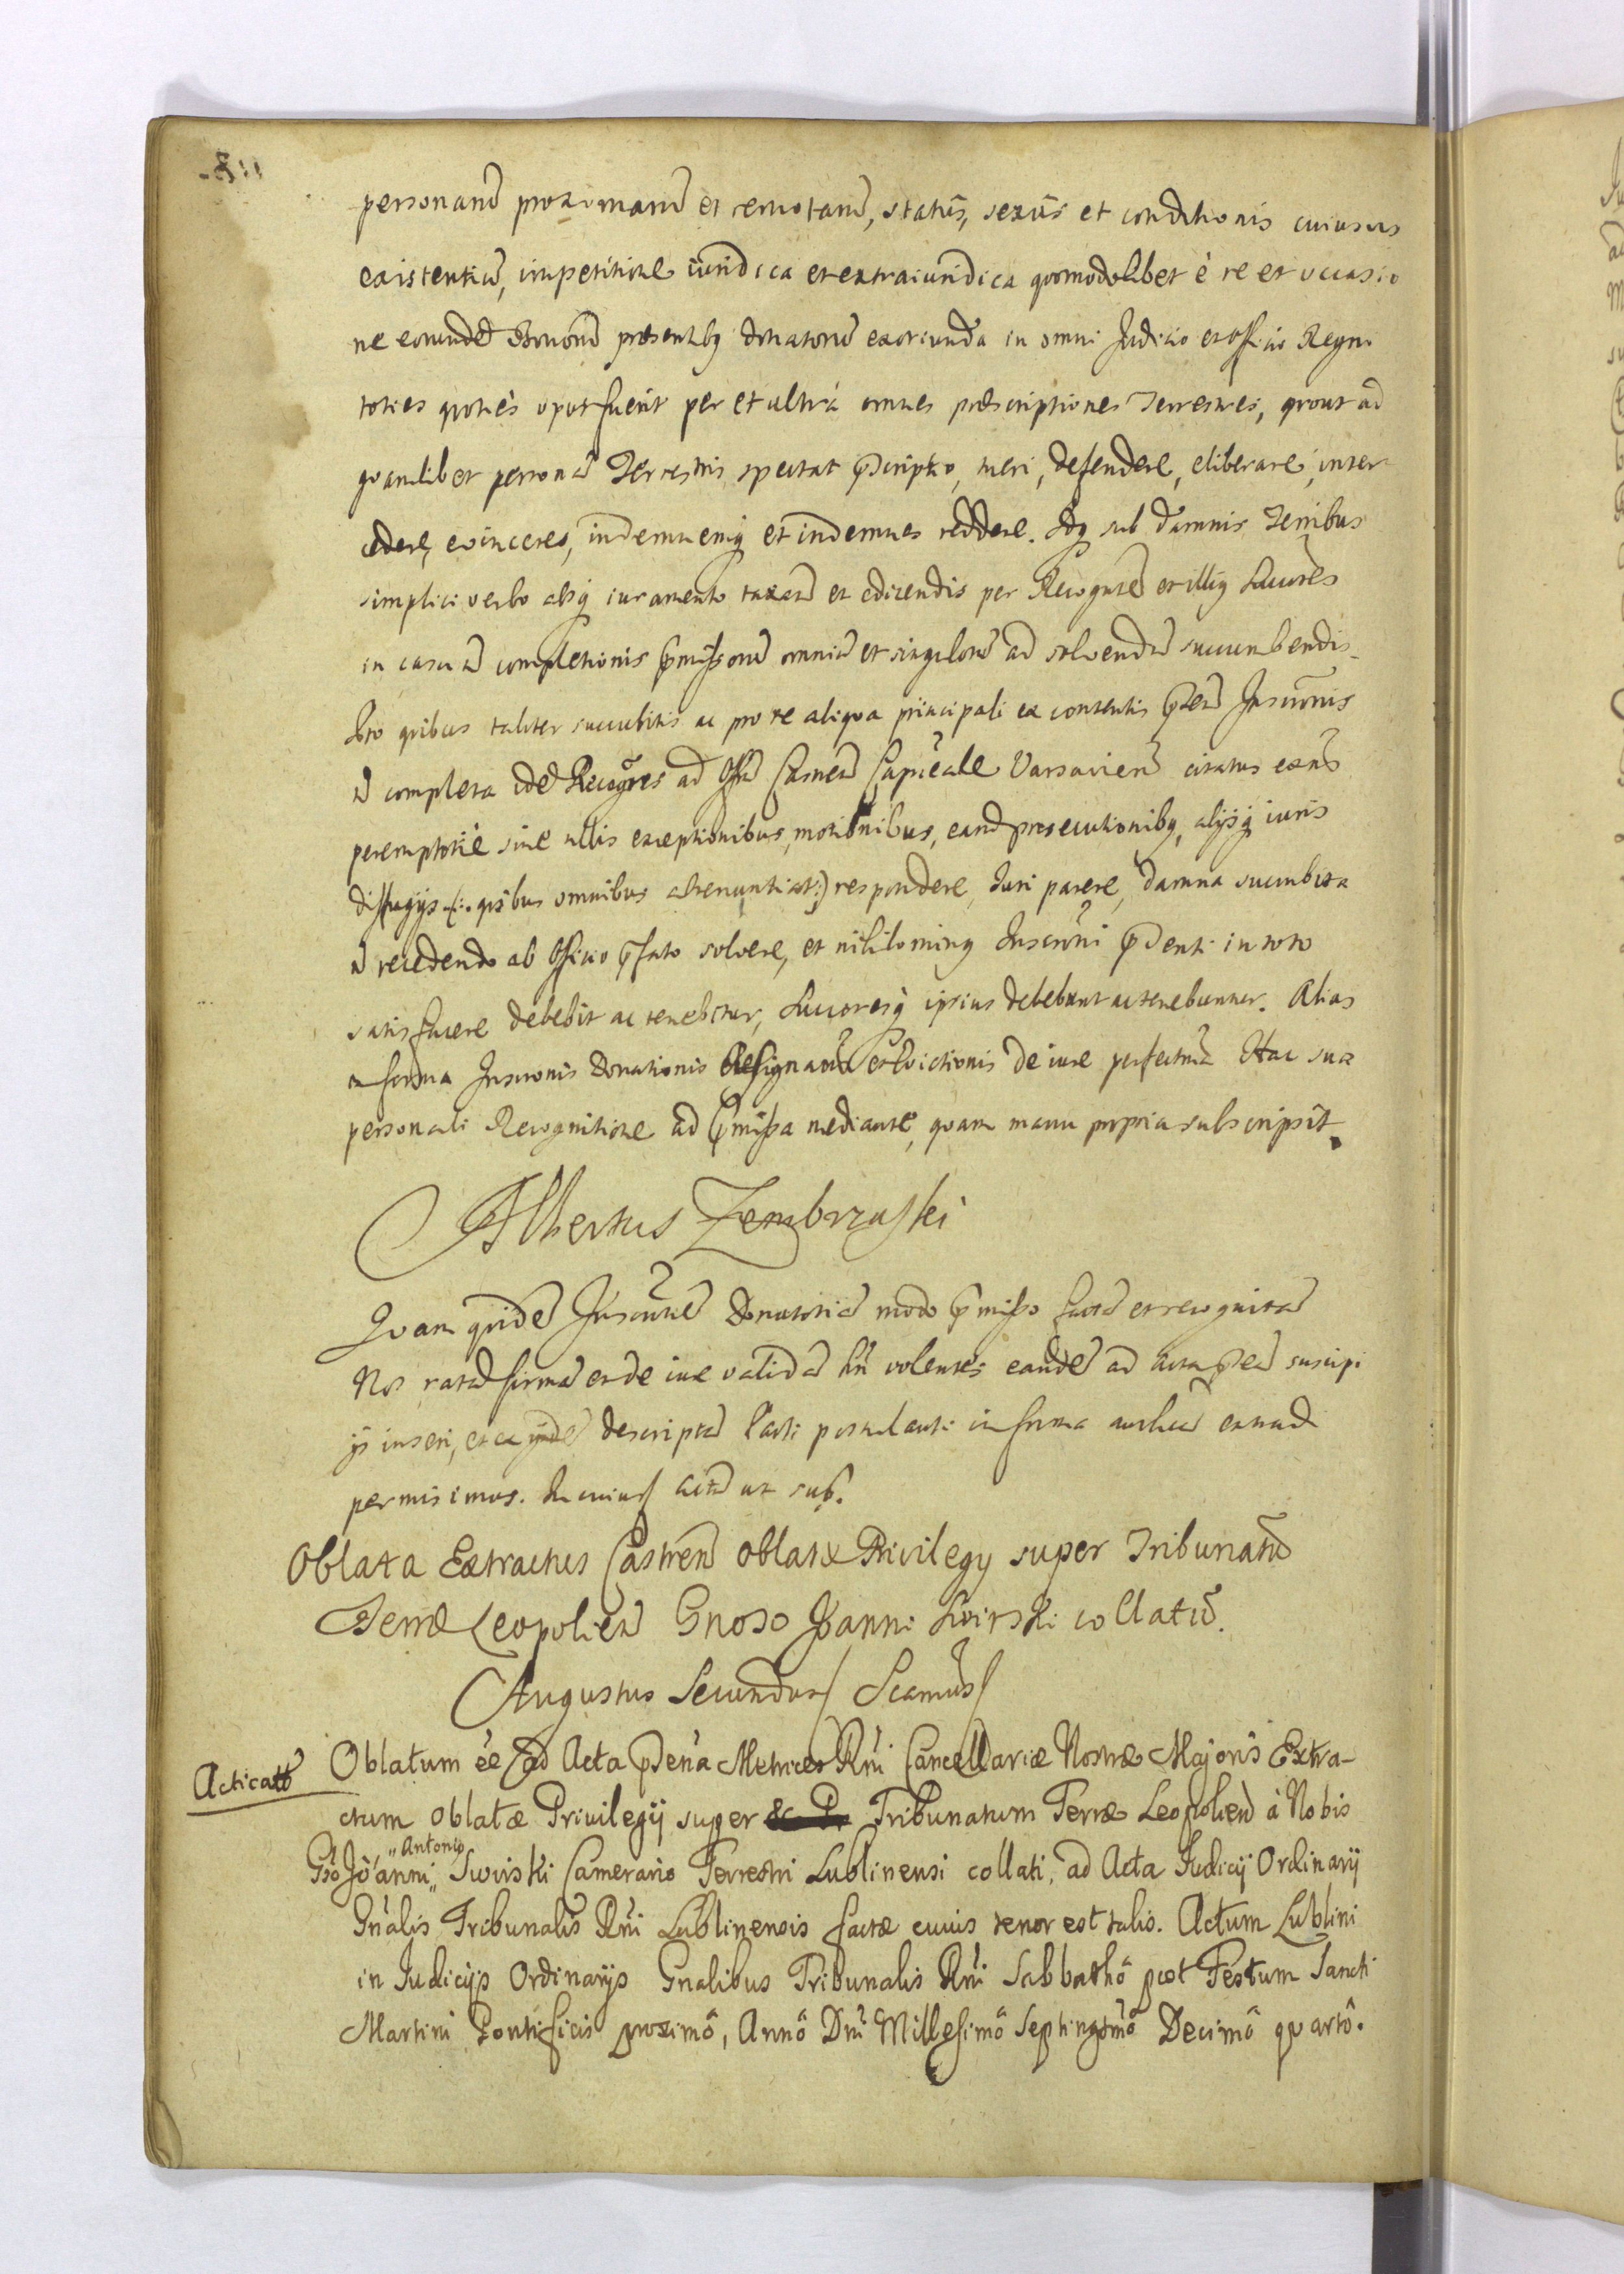 personarũ proximarũ et remotarũ, statûs, sexûs et conditionis cuiusvis
existentiũ, impetitione iuridica et extraiuridica quomodolibet è re et occasio
ne eorundẽ Bonorũ præsentibq donatorũ exoriunda in omni Judicio et Officio Regni
toties quoties opus fuerit per et ultrà omnes præscriptiones Terrestres, prout ad
quamlibet personã Terrestris spectat p̃scriptio, tueri, defendere, eliberare, inter
cedere, evincere, indemnemq et indemnes reddere. Idq sub damnis Terribus
simplici verbo absq iuramento taxatũ et edicendis per Recognteẽ et illiq Succores
in casu ñ completionis p̃missorũ omniũ et singulorũ ad solvendũ succumbendis.
Pro quibus taliter succubitis ac pro re aliqua principali ex contentis p̃ntis Inscrõnis
ñ completa idẽ Recogñes ad Offm Castreñ Capitale Varsavieñ citatus extñs
peremptoriè sine ullis exceptionibus, motionibus, eand prosecutionibq, alijsq iuris
diffugijs (: quibus omnibus abrenuntiat :) respondere, Juri parere, damna succubita
ñ recedendo ab Officio p̃fato solvere, et nihilominq Inscrõni p̃senti in toto
satisfacere debebit ac tenebitur, Succoresq ipsius debebunt ac tenebuntur. Alias
in forma Inscronis Donationis Resignaõis et Evictionis de iure perfectiss. Hac sua
personali Recognitione ad p̃missa mediante, quam manu propria subscripsit.
Albertus Zembrzuski
Quam quidẽ Inscrõnẽ Donatoriã modo p̃misso factã et recognitã
Nos ratã firmã et de iure validã hri volentes eandẽ ad acta p̃ntia suscipi
ijs inseri, et ex ijsdẽ descriptã Parti postulanti in forma authẽ extrad
permisimus. In cuius actũ ut sup̃.
Oblata Extractus Castreñ oblatæ Privilegy super Tribunatũ
Terræ Leopolieñ Gnoso Joanni Swirski collatũ.
Augustus Secundus Scamus
Acticatũ
Oblatum ẽe ad Acta p̃sentia Metrices Rñi Cancellariæ Nostræ Majoris Extra-
ctum oblatæ Privilegij super Tribunatum Terræ Leopolieñ à Nobis
"Antonio
Gso Joanni" Swirski Camerario Terrestri Lublinensi collati, ad Acta Judicij Ordinarij
Gñalis Tribunalis Rñi Lublinensis factæ cuius tenor est talis. Actum Lublini
in Judicijs Ordinarijs Gnalibus Tribunalis Rñi Sabbathô post Festum Sancti
Martini Pontificis proximô, Annô Dñi Millesimô Septingentmô Decimô quartô.